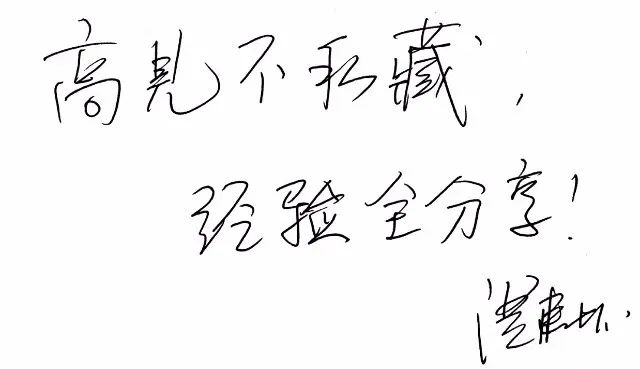 高見不私藏，
经验全分享！